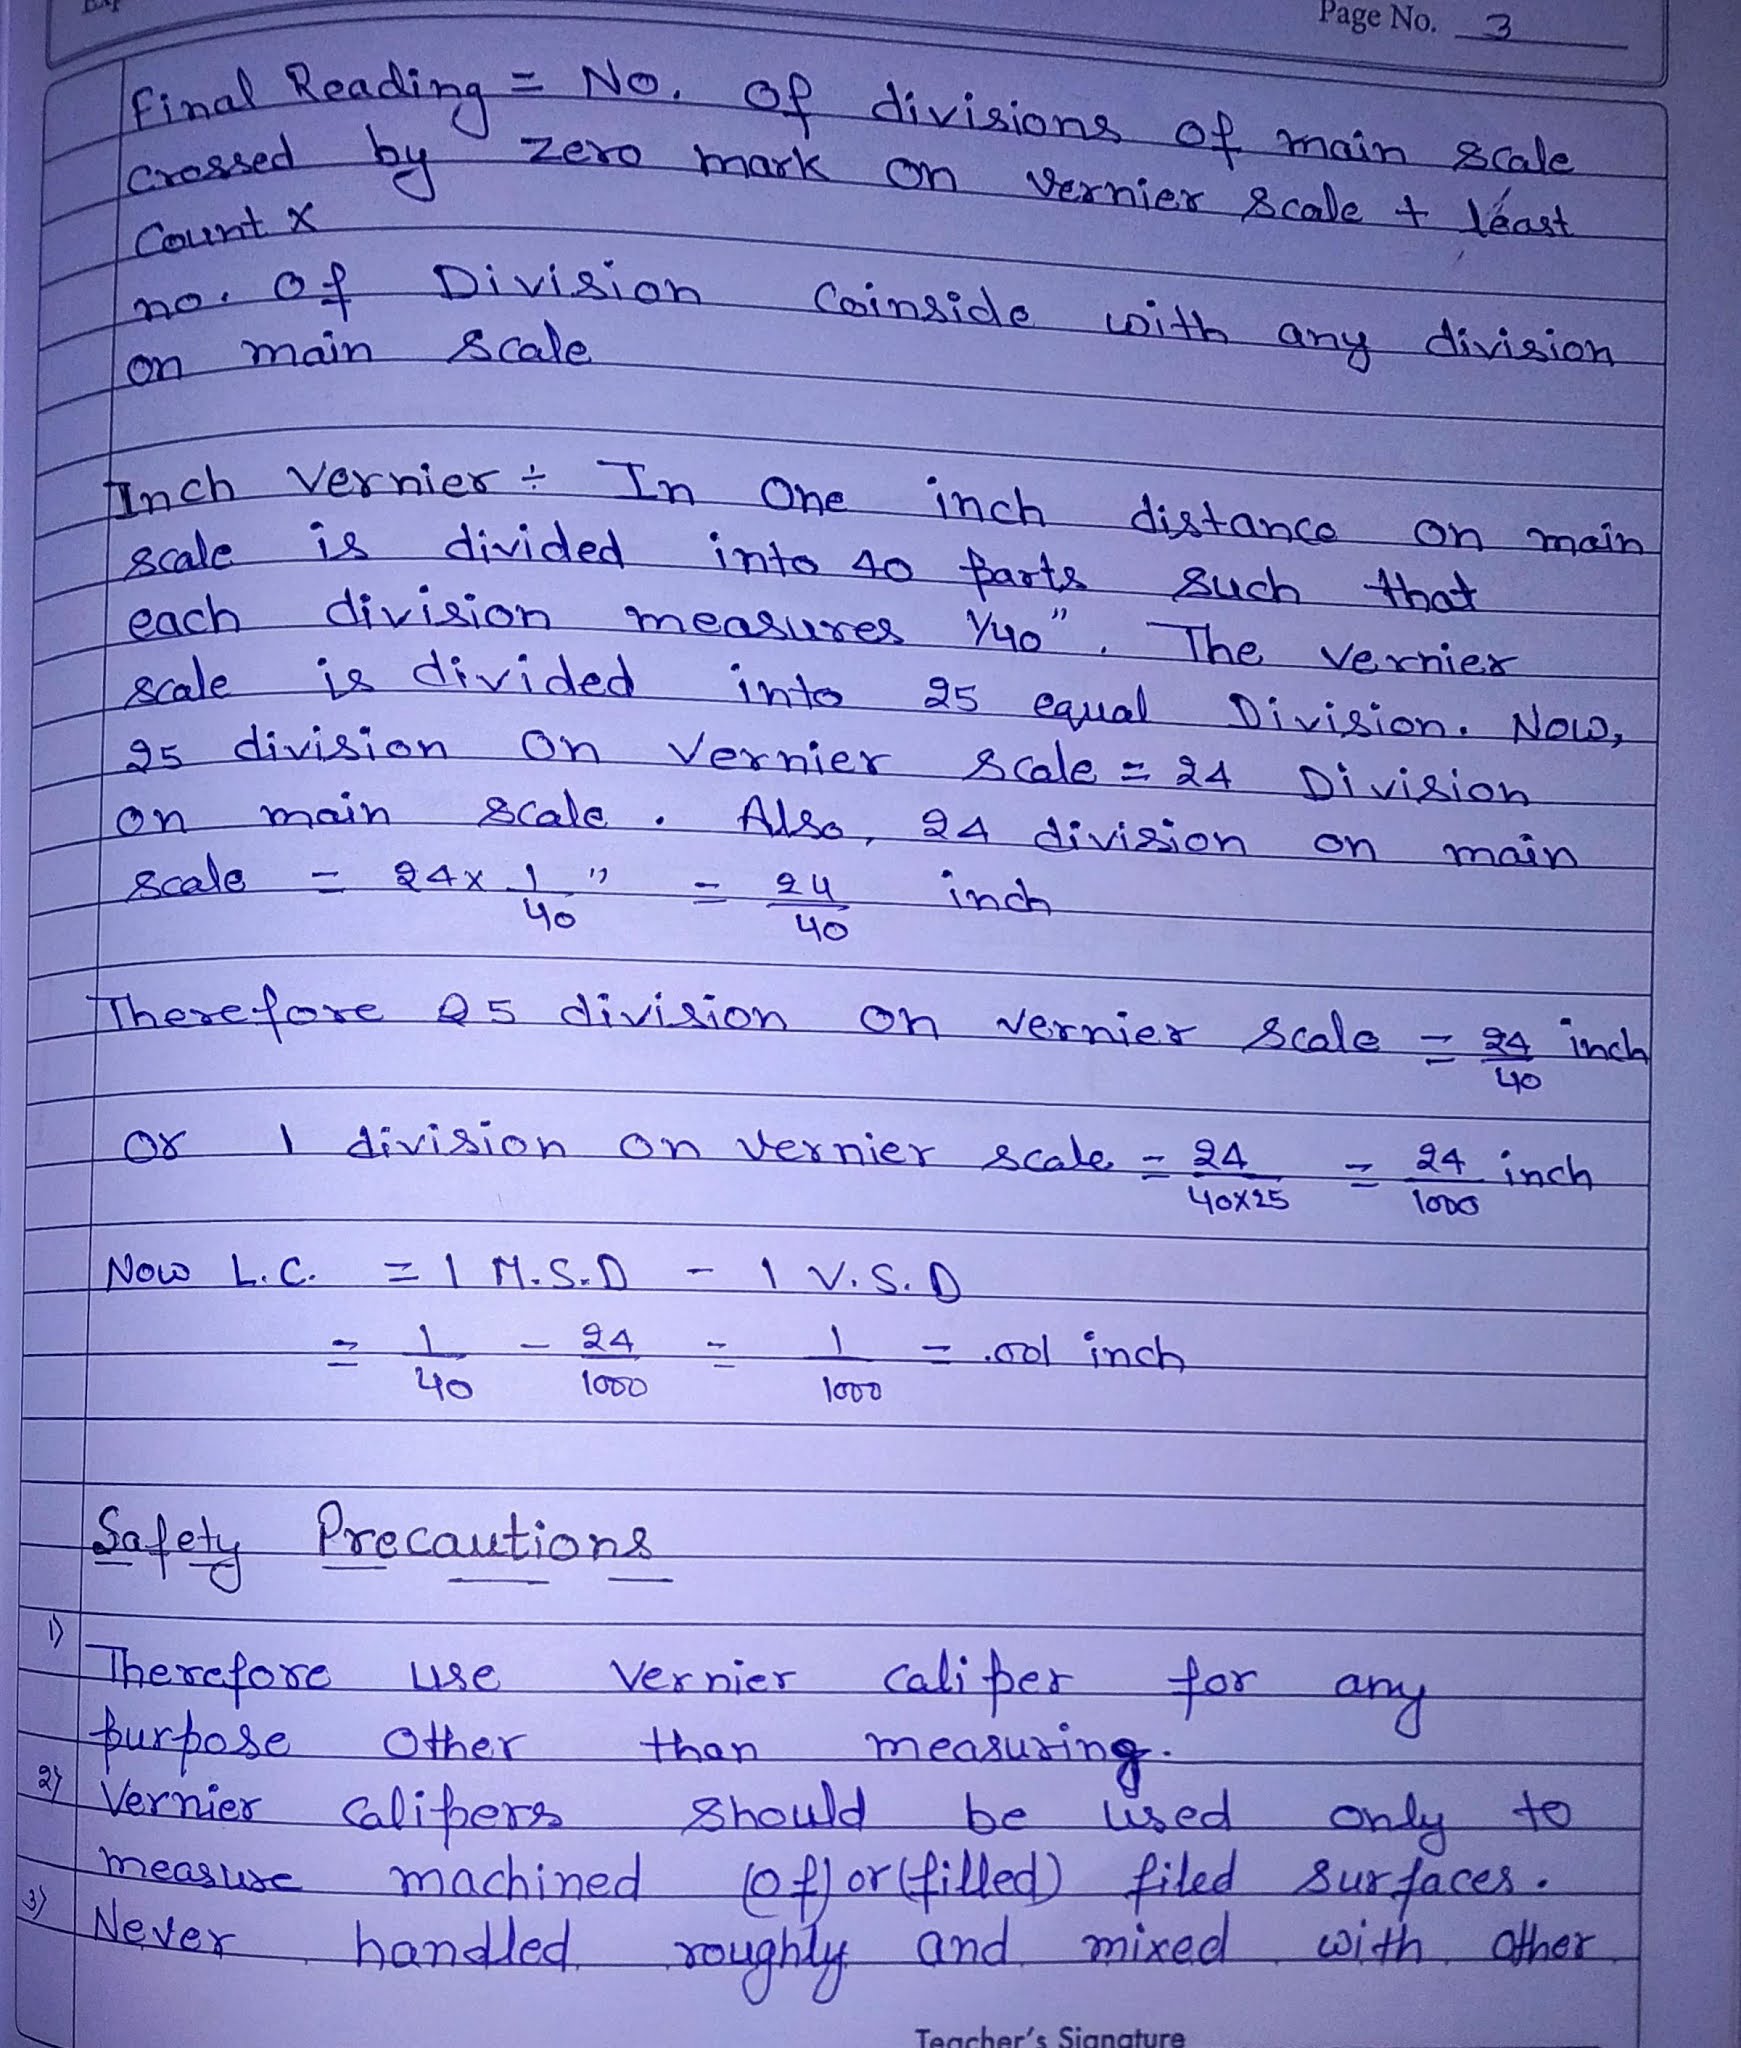 Page No. 3
Final Reading = No. of divisions of main scale
crossed by zero mark on vernier scale + least
Count x
no. of Division Coinside with any division
on main scale
Inch vernier ÷ In one inch distance on main
scale is divided into 40 parts such that
each division measures 1/40". The vernier
scale is divided into 25 equal Division. Now,
25 division on vernier scale = 24 Division
on main scale. Also, 24 division on main
scale = 24 x 1/40 " = 24/40 inch
Therefore 25 division on vernier scale = 24/40 inch
or 1 division on vernier scale = 24/40x25 = 24/1000 inch
Now L.C. = 1 M.S.D - 1 V.S.D
= 1/40 - 24/1000 = 1/1000 = .001 inch
Safety Precautions
1) Therefore use vernier caliper for any
purpose other than measuring.
2) Vernier calipers should be used only to
measure machined (of) or (filled) filed surfaces.
3) Never handled roughly and mixed with other
Teacher's Signature